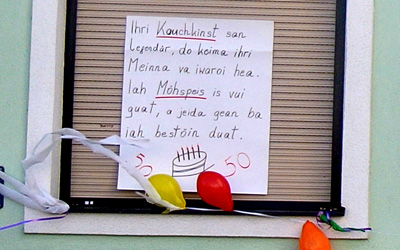 Ihri Kauchkinst san
legendär, do keima ihri
Meinna va iwaroi hea.
Iah Möhspeis is vui
guat, a jeida gean ba
iah bestöin duat.
50 50